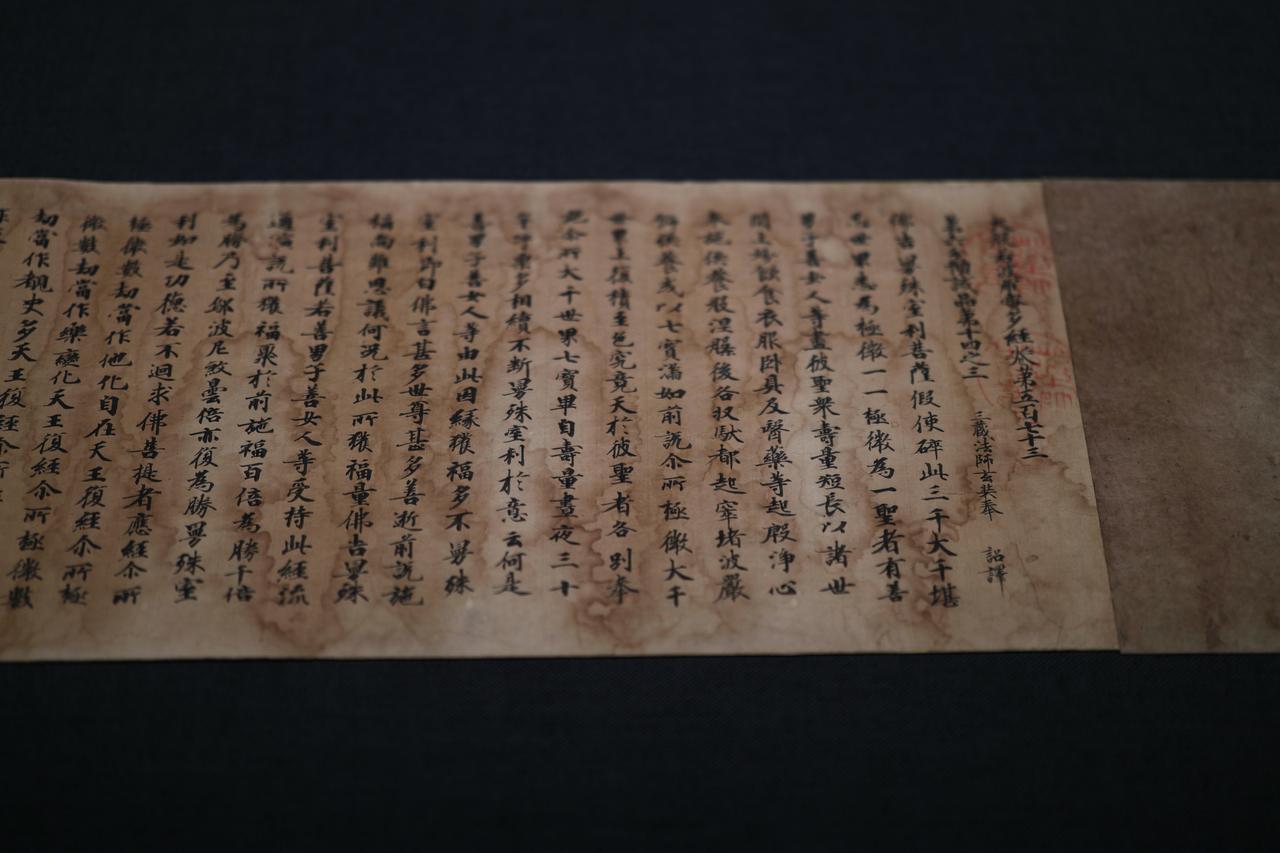 大般若波羅蜜多經卷第五百七十三
第六分陀羅品第十四之三
三藏法師玄奘奉 詔譯
佛告曼殊室利菩薩假使碎此三千大千堪
為世界悉為極微一一極微為一聖者有善
男子善女人等盡彼聖眾壽量短長以諸世
間上妙飲食衣服臥具及醫藥等起殷淨心
奉施供養般涅槃後各収馱都起窣堵波嚴
飾供養或以七寶滿如前說尒所極微大千
世界上復積至色究竟天於彼聖者各別奉
施尒所大千世界七寶畢自壽量晝夜三十
牟呼栗多相續不斷曼殊室利於意云何是
善男子善女人等由此因緣獲福多不曼殊
室利即白佛言甚多世尊甚多善逝前說施
福尚難思議何況於此所獲福量佛告曼殊
室利菩薩若善男子善女人等受持此經流
通演說所獲福聚於前施福百倍為勝千倍
為勝乃至鄔波尼煞曇倍亦復為勝曼殊室
利如是功德若不迴求佛菩提者應經尒所
極微數劫當作他化自在天王復經尒所極
微數劫當作樂變化天王復經尒所極微數
劫當作覩史多天王復經尒所極微數